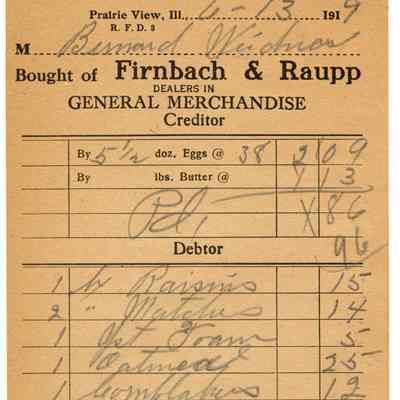 Prairie View, Ill., 6-13 1919
R. F. D. 3
M Bernard
Bought of Firnbach & Raupp
DEALERS IN
GENERAL MERCHANDISE
Creditor
By 5 1/2 doz. Eggs @ 38 2 09
By lbs. Butter @ 1 13
Pd. 86
96
Debtor
1 Raisins 15
2 " Matches 14
1 Yst Foam 5
1 Oatmeal 25
1 Cornflakes 12